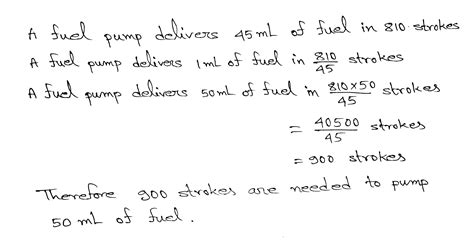 A fuel pump delivers 45 mL of fuel in 810 strokes
A fuel pump delivers 1 mL of fuel in 810/45 strokes
A fuel pump delivers 50 mL of fuel in 810×50/45 strokes
= 40500/45 strokes
= 900 strokes
Therefore 900 strokes are needed to pump
50 mL of fuel.